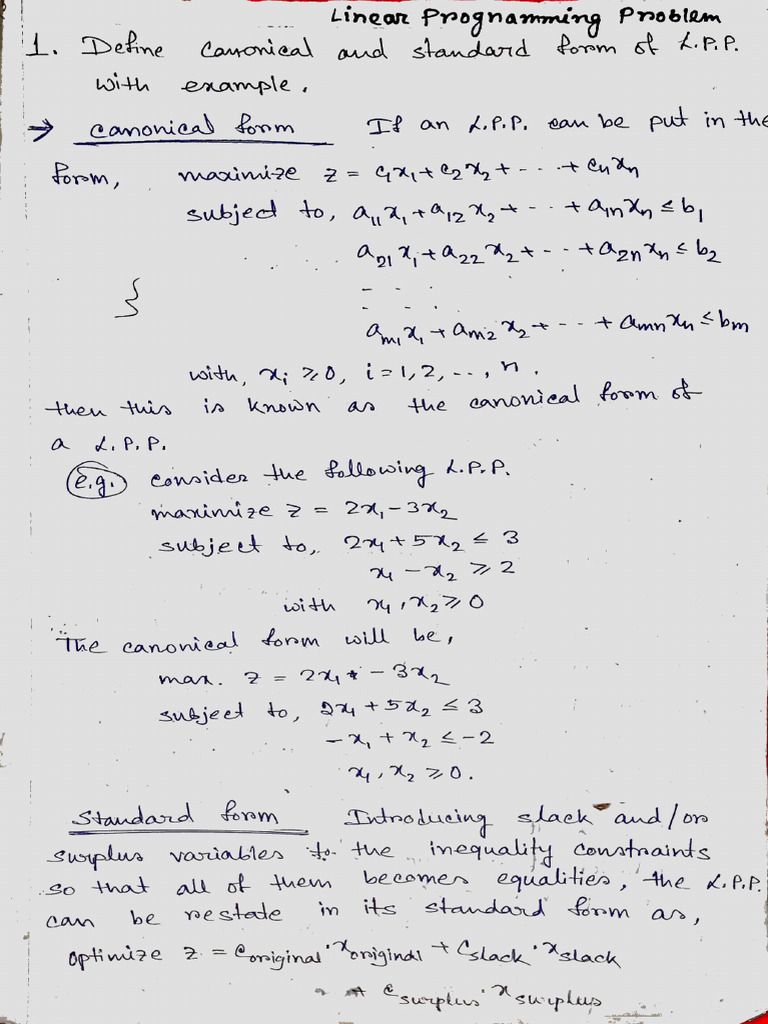 Linear Programming Problem
1. Define canonical and standard form of L.P.P.
with example.
→ canonical form If an L.P.P. can be put in the
form, maximize z = c₁x₁ + c₂x₂ + - - - + cₙxₙ
subject to, a₁₁x₁ + a₁₂x₂ + - - - + a₁ₙxₙ ≤ b₁
a₂₁x₁ + a₂₂x₂ + - - - + a₂ₙxₙ ≤ b₂
aₘ₁x₁ + aₘ₂x₂ + - - - + aₘₙxₙ ≤ bₘ
with, xᵢ ≥ 0, i = 1, 2, - - -, n.
then this is known as the canonical form of
a L.P.P.
e.g. consider the following L.P.P.
maximize z = 2x₁ - 3x₂
subject to, 2x₁ + 5x₂ ≤ 3
x₁ - x₂ ≥ 2
with x₁, x₂ ≥ 0
The canonical form will be,
max. z = 2x₁ - 3x₂
subject to, 2x₁ + 5x₂ ≤ 3
-x₁ + x₂ ≤ -2
x₁, x₂ ≥ 0.
Standard form Introducing slack and/or
surplus variables to the inequality constraints
so that all of them becomes equalities, the L.P.P.
can be restate in its standard form as,
optimize z = c_original · x_original + c_slack · x_slack
+ c_surplus · x_surplus